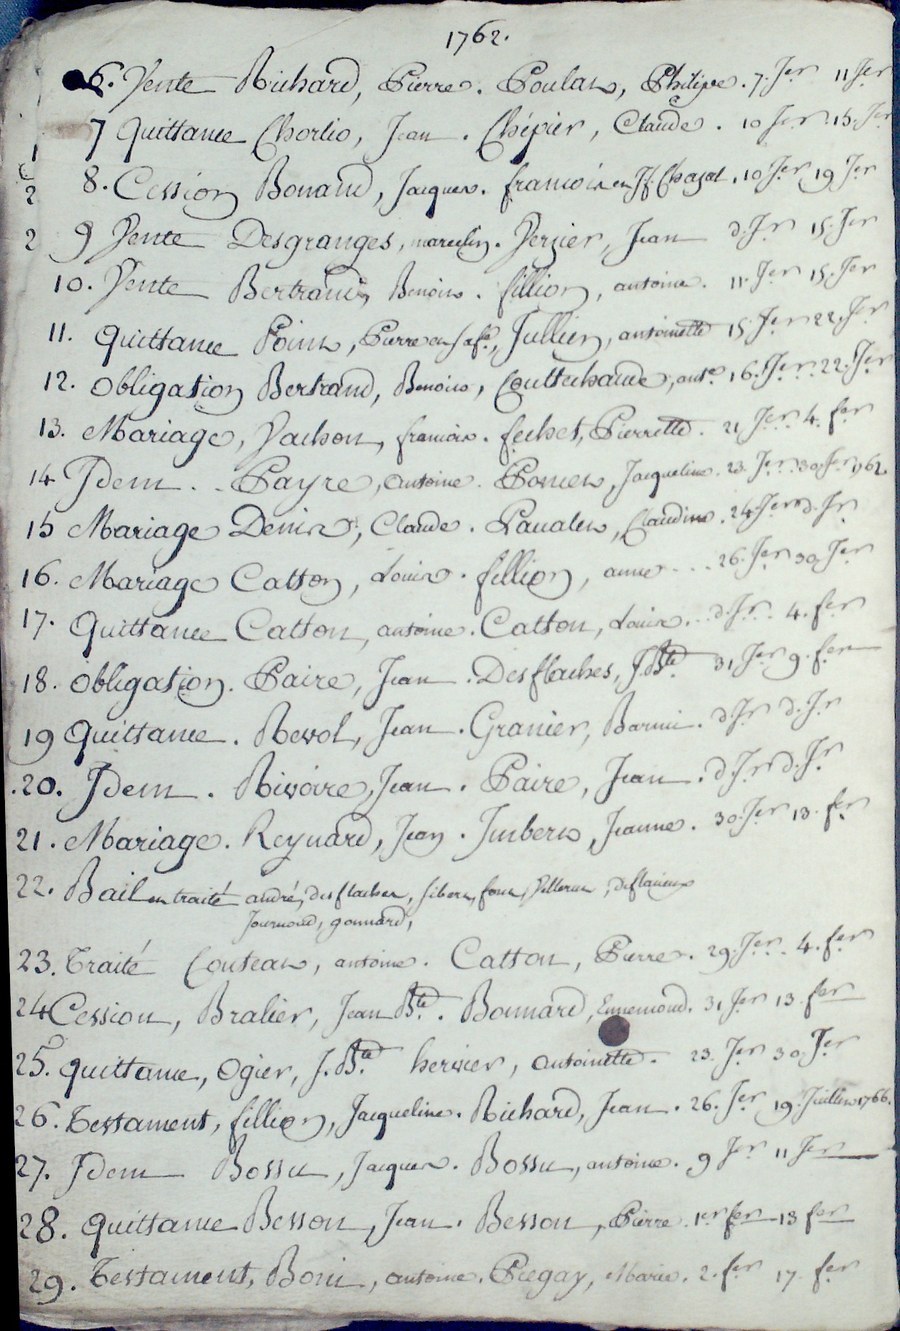 1762.
6. Vente Richard, Pierre. Poulat, Philipe. 7. Jer 11 Jer
7 Quittance Chorlio, Jean. Chépier, Claude. 10 Jer 15. Jer
8. Cession Bonand, Jacques. francois en Jf. Chazot. 10 Jer 19 Jer
9 Vente Desgranges, marcelin. Verzier, Jean d. Jr 15. Jer
10. Vente Bertrand, Benoit. fillion, antoine. 11. Jer 15. Jer
11. Quittance Point, Pierre Jullien, antoinette 15. Jer 22. Jer
12. obligation Bertrand, Benoit, Couttechaude, ante 16. Jer. 22. Jer
13. Mariage, Vachon, francois. fechet, Pierrette. 21 Jer 4. fer
14 Jdem.. Payre, antoine. Poncet, Jacqueline. 23. Jer. 30 Jer 1762
15 Mariage Denis, Claude. Pavalet, Claudine. 24 Jer d. Jr
16. Mariage Catton, Louis. fillion, anne... 26. Jer 30 Jer
17. Quittance Catton, antoine. Catton, Louis.. d. Jr. 4. fer
18. obligation. Paire, Jean. Desflaches, J. Bte. 31 Jer 9. fer
19 Quittance. Revol, Jean. Granier, Barmi. d. Jr d. Jr
.20. Jdem. Rivoire, Jean. Paire, Jean. d. Jr d. Jr
21. Mariage. Reynard, Jean. Jmbert, Jeanne. 30. Jer 13. fer
22. Bail en traité andré, desflaches, sibert, four,
Journoud, gonnard,
23. Traité Couteau, antoine. Catton, Pierre. 29. Jer. 4. fer
24 Cession, Bralier, Jean Bte. Bonnard, Ennemond. 31. Jer 13. fer
25. quittance, Ogier, J. Bte hervier, antoinette. 23. Jer 30 Jer
26. Testament, fillion, Jacqueline. Richard, Jean. 26. Jer 19. Juillet 1766.
27. Jdem Bossu, Jacques. Bossu, antoine. 9 Jer 11 Jer
28. Quittance Besson, Jean. Besson, Pierre. 1er fer 13 fer
29. Testament, Boni, antoine. Piegay, Marie. 2. fer 17. fer